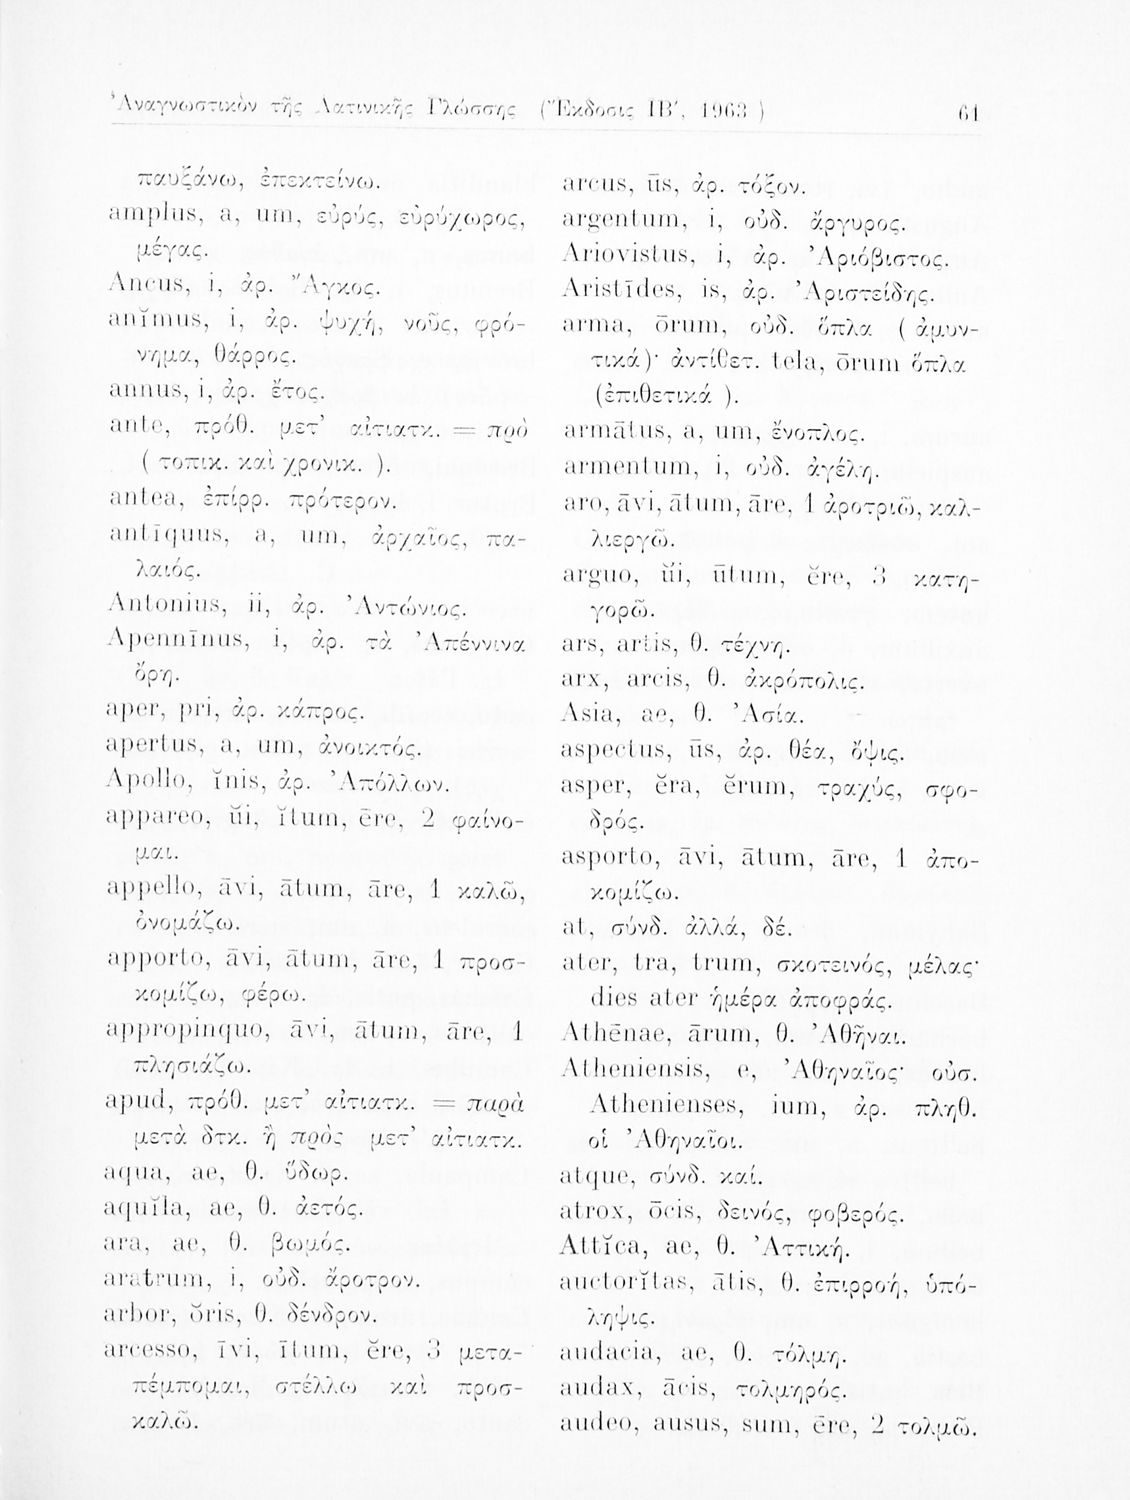 Ἀναγνωστικὸν τῆς Λατινικῆς Γλώσσης (Ἔκδοσις ΙΒ′, 1963 ) 61
παυξάνω, ἐπεκτείνω.
amplus, a, um, εὐρύς, εὐρύχωρος,
μέγας.
Ancus, i, ἀρ. Ἄγκος.
anĭmus, i, ἀρ. ψυχή, νοῦς, φρό-
νημα, θάρρος.
annus, i, ἀρ. ἔτος.
ante, πρόθ. μετ’ αἰτιατκ. = πρὸ
( τοπικ. καὶ χρονικ. ).
antea, ἐπίρρ. πρότερον.
antīquus, a, um, ἀρχαῖος, πα-
λαιός.
Antonius, ii, ἀρ. Ἀντώνιος.
Apennīnus, i, ἀρ. τὰ Ἀπέννινα
ὄρη.
aper, pri, ἀρ. κάπρος.
apertus, a, um, ἀνοικτός.
Apollo, ĭnis, ἀρ. Ἀπόλλων.
appareo, ŭi, ĭtum, ēre, 2 φαίνο-
μαι.
appello, āvi, ātum, āre, 1 καλῶ,
ὀνομάζω.
apporto, āvi, ātum, āre, 1 προσ-
κομίζω, φέρω.
appropinquo, āvi, ātum, āre, 1
πλησιάζω.
apud, πρόθ. μετ’ αἰτιατκ. = παρὰ
μετὰ δτκ. ἢ πρὸς μετ’ αἰτιατκ.
aqua, ae, θ. ὕδωρ.
aquĭla, ae, θ. ἀετός.
ara, ae, θ. βωμός.
aratrum, i, οὐδ. ἄροτρον.
arbor, ŏris, θ. δένδρον.
arcesso, īvi, ītum, ĕre, 3 μετα-
πέμπομαι, στέλλω καὶ προσ-
καλῶ.
arcus, ūs, ἀρ. τόξον.
argentum, i, οὐδ. ἄργυρος.
Ariovistus, i, ἀρ. Ἀριόβιστος.
Aristīdes, is, ἀρ. Ἀριστείδης.
arma, ōrum, οὐδ. ὅπλα ( ἀμυν-
τικά)· ἀντίθετ. tela, ōrum ὅπλα
(ἐπιθετικά ).
armātus, a, um, ἔνοπλος.
armentum, i, οὐδ. ἀγέλη.
aro, āvi, ātum, āre, 1 ἀροτριῶ, καλ-
λιεργῶ.
arguo, ŭi, ūtum, ĕre, 3 κατη-
γορῶ.
ars, artis, θ. τέχνη.
arx, arcis, θ. ἀκρόπολις.
Asia, ae, θ. Ἀσία.
aspectus, ūs, ἀρ. θέα, ὄψις.
asper, ĕra, ĕrum, τραχύς, σφο-
δρός.
asporto, āvi, ātum, āre, 1 ἀπο-
κομίζω.
at, σύνδ. ἀλλά, δέ.
ater, tra, trum, σκοτεινός, μέλας·
dies ater ἡμέρα ἀποφράς.
Athēnae, ārum, θ. Ἀθῆναι.
Atheniensis, e, Ἀθηναῖος· οὐσ.
Athenienses, ium, ἀρ. πληθ.
οἱ Ἀθηναῖοι.
atque, σύνδ. καί.
atrox, ōcis, δεινός, φοβερός.
Attĭca, ae, θ. Ἀττική.
auctorĭtas, ātis, θ. ἐπιρροή, ὑπό-
ληψις.
audacia, ae, θ. τόλμη.
audax, ācis, τολμηρός.
audeo, ausus, sum, ēre, 2 τολμῶ.